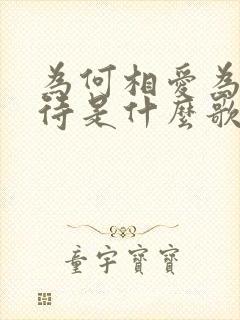 為何相愛為
待是什麼歌
童宇寶寶